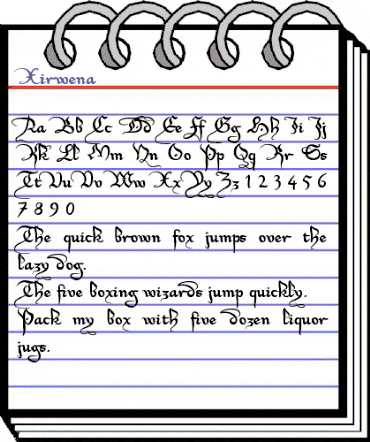 Xirwena
Aa Bb Cc Dd Ee Ff Gg Hh Ii Jj
Kk Ll Mm Nn Oo Pp Qq Rr Ss
Tt Uu Vv Ww Xx Yy Zz 1 2 3 4 5 6
7 8 9 0
The quick brown fox jumps over the
lazy dog.
The five boxing wizards jump quickly.
Pack my box with five dozen liquor
jugs.